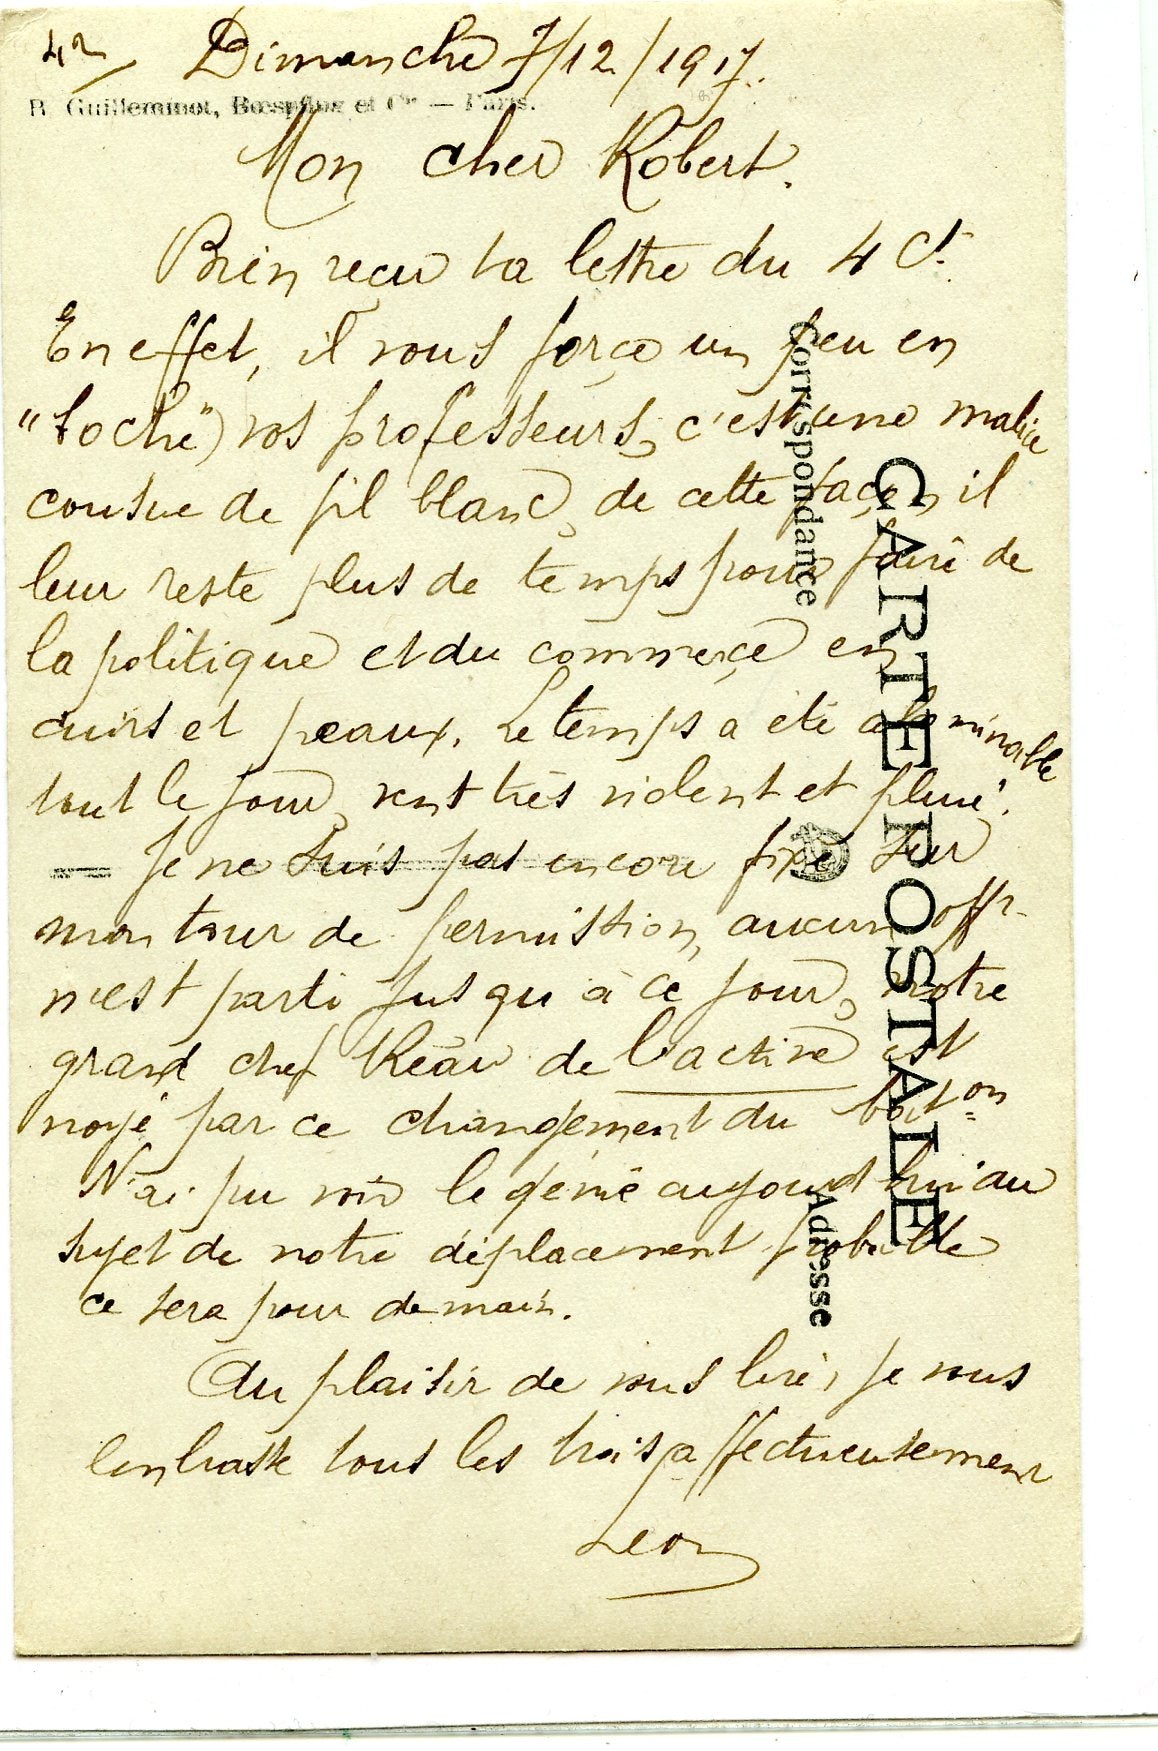 42/ Dimanche 7/12/1917.
R. Guilleminot, Bœspflug et Cie — Paris.
Mon cher Robert.
Bien reçu ta lettre du 4 Ct.
En effet, il vous force un peu en
"boche") vos professeurs, c'est une malice
cousue de fil blanc, de cette façon il
leur reste plus de temps pour faire de
la politique et du commerce en
cuirs et peaux. Le temps a été abominable
tout le jour, vent très violent et pluie.
— Je ne suis pas encore fixé sur
mon tour de permission, aucun offr.
n'est parti jusqu'à ce jour, notre
grand chef Réau de l'active est
noyé par ce changement du baton
N'ai pu voir le génie aujourd'hui au
sujet de notre déplacement probable
ce sera pour demain.
Au plaisir de vous lire, je vous
embrasse tous les trois affectueusement
Leon
Correspondance
CARTE POSTALE
Adresse